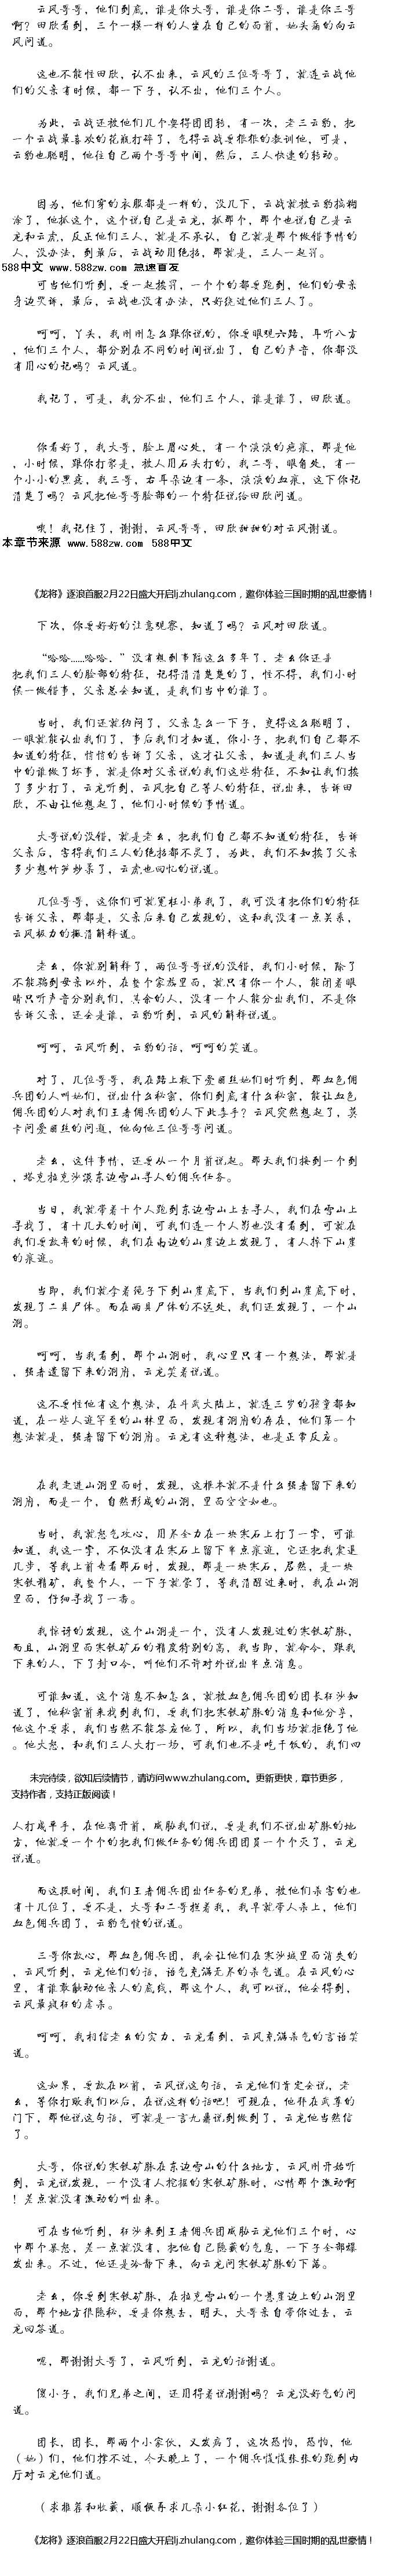 云风哥哥，他们到底，谁是你大哥，谁是你二哥，谁是你三哥
啊？田欣看到，三个一模一样的人坐在自己的面前，她头痛的向云
风问道。
这也不能怪田欣，认不出来，云风的三位哥哥了，就连云战他
们的父亲有时候，都一下子，认不出，他们三个人。
为此，云战还被他们几个耍得团团转，有一次，老三云豹，把
一个云战最喜欢的花瓶打碎了，气得云战要狠狠的教训他，可是，
云豹也聪明，他往自己两个哥哥中间，然后，三人快速的转动。
因为，他们穿的衣服都是一样的，没几下，云战就被云豹搞糊
涂了，他抓这个，这个说自己是云龙，抓那个，那个也说自己是云
龙和云虎，反正他们三人，就是不承认，自己就是那个做错事情的
人，没办法，到最后，云战动用绝招，那就是，三人一起罚。
588中文 www.588zw.com 急速首发
可当他们听到，要一起挨罚，一个个的都要跑到，他们的母亲
身边哭诉，最后，云战也没有办法，只好绕过他们三人了。
呵呵，丫头，我刚刚怎么跟你说的，你要眼观六路，耳听八方
，他们三个人，都分别在不同的时间说出了，自己的声音，你都没
有用心的记吗？云风道。
我记了，可是，我分不出，他们三个人，谁是谁了，田欣道。
你看好了，我大哥，脸上眉心处，有一个淡淡的疤痕，那是他
，小时候，跟你打架是，被人用石头打的，我二哥，眼角处，有一
个小小的黑痣，我三哥，右耳朵边有一条，淡淡的血痕，这下你记
清楚了吗？云风把他哥哥脸部的一个特征说给田欣问道。
哦！我记住了，谢谢，云风哥哥，田欣甜甜的对云风谢道。
本章节来源 www.588zw.com 588中文
《龙将》逐浪首服2月22日盛大开启lj.zhulang.com，邀你体验三国时期的乱世豪情！
下次，你要好好的注意观察，知道了吗？云风对田欣道。
“哈哈……哈哈．”没有想到事隔这么多年了．老幺你还是
把我们三人的脸部的特征，记得清清楚楚的了，怪不得，我们小时
候一做错事，父亲总会知道，是我们当中的谁了。
当时，我们还就纳闷了，父亲怎么一下子，变得这么聪明了，
一眼就能认出我们了，事后我们才知道，你小子，把我们自己都不
知道的特征，悄悄的告诉了父亲，这才让父亲，知道是我们三人当
中的谁做了坏事，就是你对父亲说的我们这些特征，不知让我们挨
了多少打了，云龙听到，云风把自己等人的特征，说出来，告诉田
欣，不由让他想起了，他们小时候的事情道。
大哥说的没错，就是老幺，把我们自己都不知道的特征，告诉
父亲后，害得我们三人的绝招都不灵了，为此，我们不知挨了父亲
多少顿竹笋炒菜了，云虎也回忆的说道。
几位哥哥，这你们可就冤枉小弟我了，我可没有把你们的特征
告诉父亲，那都是，父亲后来自己发现的，这和我没有一点关系，
云风极力的撇清解释道。
老幺，你就别解释了，两位哥哥说的没错，我们小时候，除了
不能骗到母亲以外，在整个家族里面，就只有你一个人，能闭着眼
睛只听声音分别我们，其余的人，没有一个人能分出我们，不是你
告诉父亲，还会是谁，云豹听到，云风的解释说道。
呵呵，云风听到，云豹的话，呵呵的笑道。
对了，几位哥哥，我在路上救下爱丽丝她们时听到，那血色佣
兵团的人叫她们，说出什么秘密，你们到底有什么秘密，能让血色
佣兵团的人对我们王者佣兵团的人下此毒手？云风突然想起了，莫
卡问爱丽丝的问道，他向他三位哥哥问道。
老幺，这件事情，还要从一个月前说起。那天我们接到一个到
，塔克拉克沙漠东边雪山寻人的佣兵任务。
当日，我就带着十个人跑到东边雪山上去寻人，我们在雪山上
寻找了，有十几天的时间，可我们连一个人影也没有看到，可就在
我们要放弃的时候，我们在南边的山崖边上发现了，有人掉下山崖
的痕迹。
当即，我们就拿着绳子下到山崖底下，当我们到山崖底下时，
发现了二具尸体。而在两具尸体的不远处，我们还发现了，一个山
洞。
呵呵，当我看到，那个山洞时，我心里只有一个想法，那就是
，强者遗留下来的洞府，云龙笑着说道。
这不要怪他有这个想法，在斗武大陆上，就连三岁的孩童都知
道，在一些人迹罕至的山林里面，发现有洞府的存在，他们第一个
想法就是，强者留下的洞府。云龙有这种想法，也是正常反应。
在我走进山洞里面时，发现，这根本就不是什么强者留下来的
洞府，而是一个，自然形成的山洞，里面空空如也。
当时，我就怒气攻心，用尽全力在一块寒石上打了一掌，可谁
知道，我这一掌，不仅没有在寒石上留下半点痕迹，它还把我震退
几步，等我上前查看那石时，发现，那是一块寒石，居然，是一块
寒铁精矿，我整个人，一下子就蒙了，等我清醒过来时，我在山洞
里面，仔细寻找了一番。
我惊讶的发现，这个山洞是一个，没有人发现过的寒铁矿脉，
而且，山洞里面寒铁矿石的精度特别的高，我当即，就命令，跟我
下来的人，下了封口令，叫他们不许对外说出半点消息。
可谁知道，这个消息不知怎么，就被血色佣兵团的团长狂沙知
道了，他秘密前来找到我们，要我们把寒铁矿脉的消息和他分享，
他这个要求，我们当然不能答应他了，所以，我们当场就拒绝了他
。他大怒，和我们三人大打一场，可我们也不是吃干饭的，我们四
未完待续，欲知后续情节，请访问www.zhulang.com。更新更快，章节更多，
支持作者，支持正版阅读！
人打成平手，在他离开前，威胁我们说，要是我们不说出矿脉的地
方，他就要一个个的把我们做任务的佣兵团团员一个个灭了，云龙
说道。
而这段时间，我们王者佣兵团出任务的兄弟，被他们杀害的也
有十几位了，要不是，大哥和二哥拦着我，我早就带人杀上，他们
血色佣兵团了，云豹气愤的说道。
三哥你放心，那血色佣兵团，我会让他们在寒沙城里面消失的
，云风听到，云龙他们的话，语气充满无尽的杀气道。在云风的心
里，有谁敢触动他亲人的底线，那这个人，我可以说，他会得到，
云风最疯狂的虐杀。
呵呵，我相信老幺的实力，云龙看到，云风充满杀气的言语笑
道。
这如果，要放在以前，云风说这句话，云龙他们肯定会说，老
幺，等你打败我们以后，在说这样的话吧！可现在，他拜在武尊的
门下，那他说这句话，可就是一言九鼎说到做到了，云龙他当然信
了。
大哥，你说的寒铁矿脉在东边雪山的什么地方，云风刚开始听
到，云龙说发现，一个没有人挖掘的寒铁矿脉时，心情那个激动啊
！差点就没有激动的叫出来。
可在当他听到，狂沙来到王者佣兵团威胁云龙他们三个时，心
中那个暴怒，差一点就没有，把他自己隐藏的气息，一下子全部爆
发出来。不过，他还是冷静下来，向云龙问寒铁矿脉的下落。
老幺，你要到寒铁矿脉，在拉克雪山的一个悬崖边上的山洞里
面，那个地方很隐秘，要是你想去，明天，大哥亲自带你过去，云
龙回答道。
嗯，那谢谢大哥了，云风听到，云龙的话谢道。
傻小子，我们兄弟之间，还用得着说谢谢吗？云龙没好气的问
道。
团长，团长，那两个小家伙，又发病了，这次恐怕，恐怕，他
（她）们，他们撑不过，今天晚上了，一个佣兵慌慌张张的跑到内
厅对云龙他们道。
（求推荐和收藏，顺便再求几朵小红花，谢谢各位了）
《龙将》逐浪首服2月22日盛大开启lj.zhulang.com，邀你体验三国时期的乱世豪情！